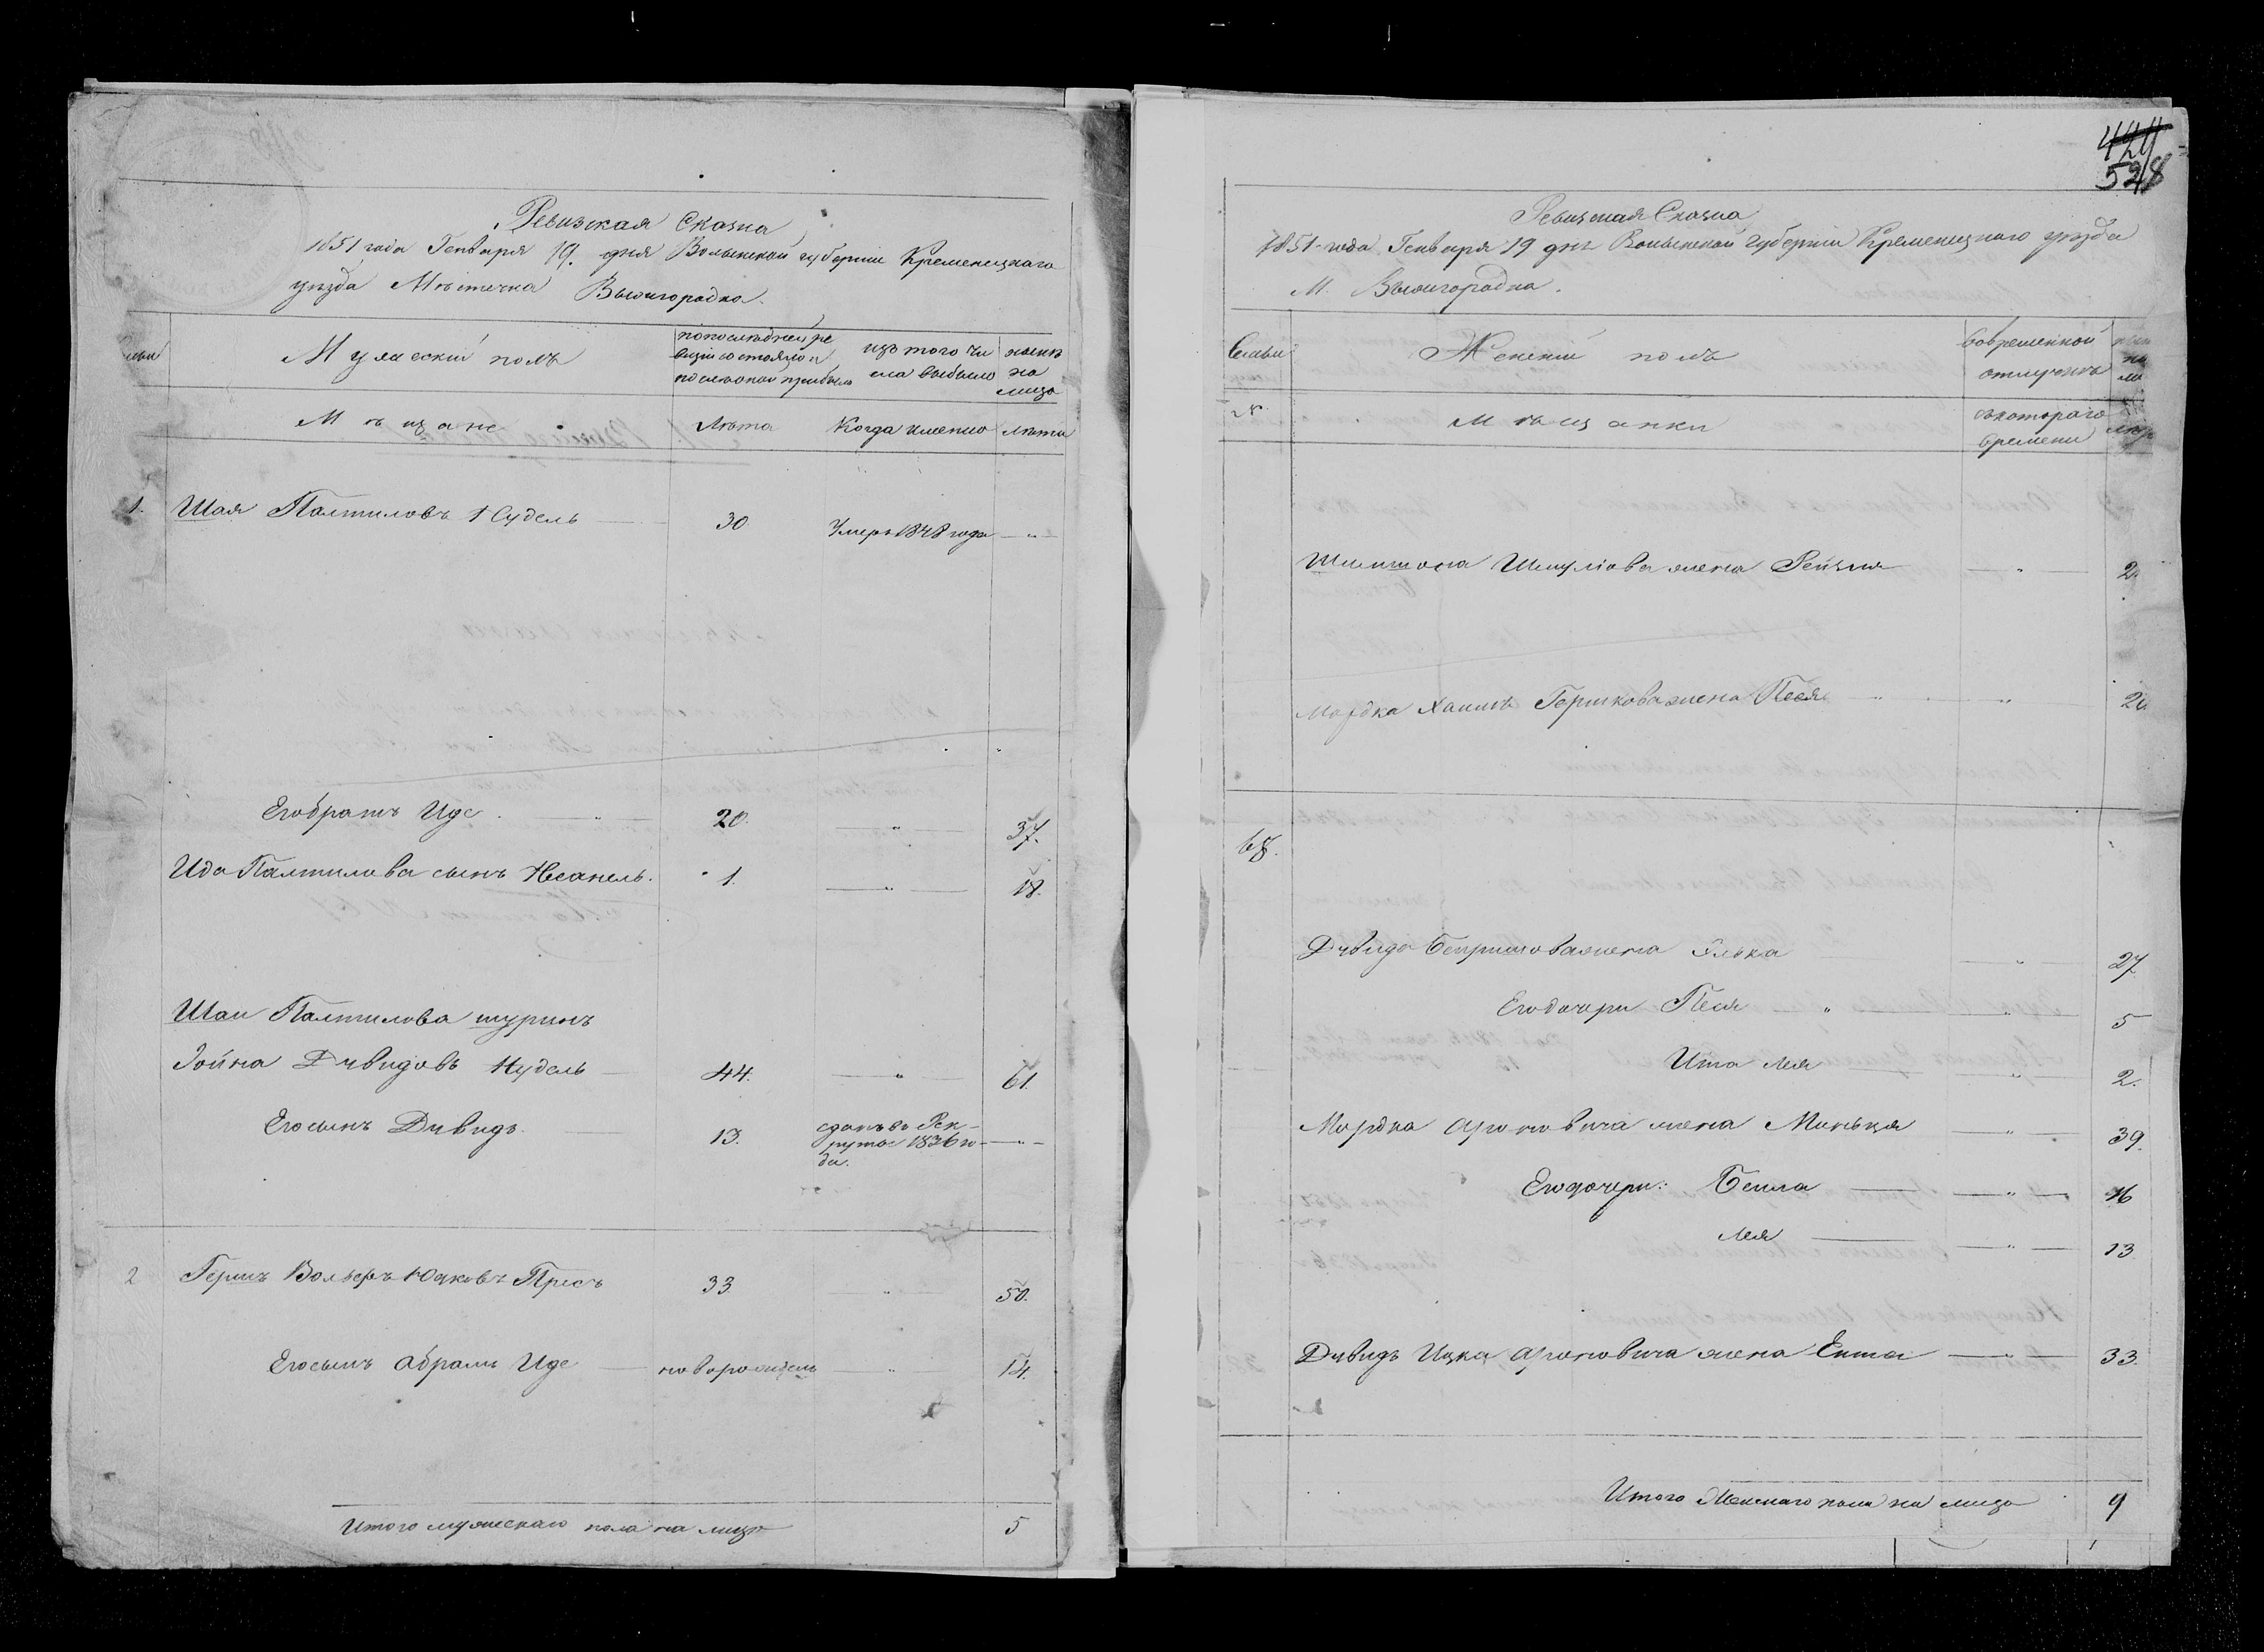 Ревизская Сказка
1851 года Генваря 19. дня Волынской губернии Кременецкаго
уезда Мѣстечка Вышгородка.
Мужескій полъ
по последней ре
визіи состояло и
после оной прибыло
изъ того чи
сла выбыло
нынѣ
на
лицо
Мѣщане
Лѣта
Когда именно
лѣта
1. Шая Палтиловъ Нудель 30 Умеръ 1848 года "
Его братъ Иде 20. " 37.
Ида Палтилова сынъ Несанель. 1. " 18.
Шаи Палтилова шуринъ
Іойна Дувидовъ Нудель 44. " 61.
Его сынъ Дувидъ 13. сданъ въ Рек-
руты 1836 го-
да.
2 Гершъ Вольфъ Юдковъ Пресъ 33 " 50.
Его сынъ Абрамъ Иде новорожденъ " 14.
Итого мужескаго пола на лицо 5
429
528
Ревизская Сказка
1851 года Генваря 19 дня Волынской губерніи Кременецкаго уезда
М. Вышгородка.
Семьи
Женскій полъ
во временной
отлучкѣ
№
Мѣщанки
съ котораго
времени
Шимшона Шмулiова жена Рейзя "
Мордка Хаимъ Гершкова жена Песя " "
68.
Дувида Бениршова жена Элька " 27
Его дочери Песя " " 5
Ита Лея " 2.
Мордка Ароновича жена Миньця " 39.
Его дочери: Бейла " 16
Лея " 13
Дувидъ Ицка Ароновича жена Ента " 33.
Итого Женскаго пола на лицо 9